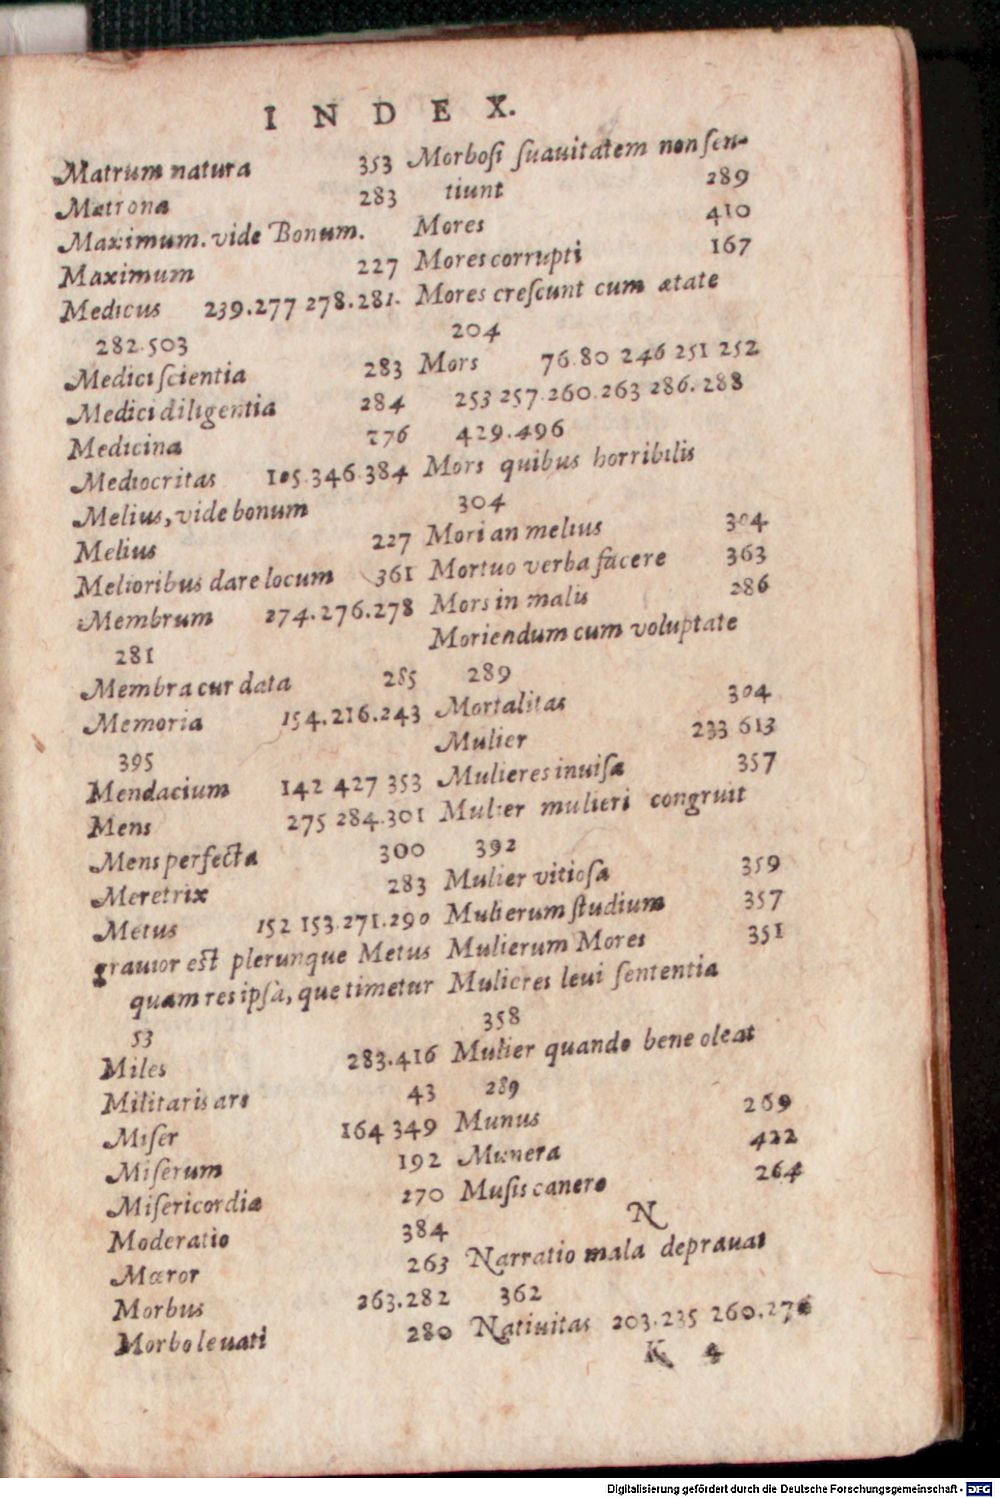 INDEX.
Matrum natura 353
Matrona 283
Maximum. vide Bonum.
Maximum 227
Medicus 239.277 278.281.
282.503
Medici scientia 283
Medici diligentia 284
Medicina 276
Mediocritas 105.346.384
Melius, vide bonum
Melius 227
Melioribus dare locum 361
Membrum 274.276.278
281
Membra cur data 285
Memoria 154.216.243
395
Mendacium 142 427 353
Mens 275 284.301
Mens perfecta 300
Meretrix 283
Metus 152 153.271.290
grauior est plerunque Metus
quam res ipsà, que timetur
53
Miles 283.416
Militaris ars 43
Miser 164 349
Miserum 192
Misericordia 270
Moderatio 384
Mæror 263
Morbus 263.282
Morbo leuati 280
Morbosi suauitatem non sen-
tiunt 289
Mores 410
Mores corrupti 167
Mores crescunt cum ætate
204
Mors 76.80 246 251 252
253 257.260.263 286.288
429.496
Mors quibus horribilis
304
Mori an melius 304
Mortuo verba facere 363
Mors in malis 286
Moriendum cum voluptate
289
Mortalitas 304
Mulier 233 613
Mulieres inuisæ 357
Mulier mulieri congruit
392
Mulier vitiosa 359
Mulierum studium 357
Mulierum Mores 351
Mulieres leui sententia
358
Mulier quando bene oleat
289
Munus 269
Munera 422
Musis canere 264
N
Narratio mala deprauat
362
Natiuitas 203.235 260.276
K 4
Digitalisierung gefördert durch die Deutsche Forschungsgemeinschaft - DFG